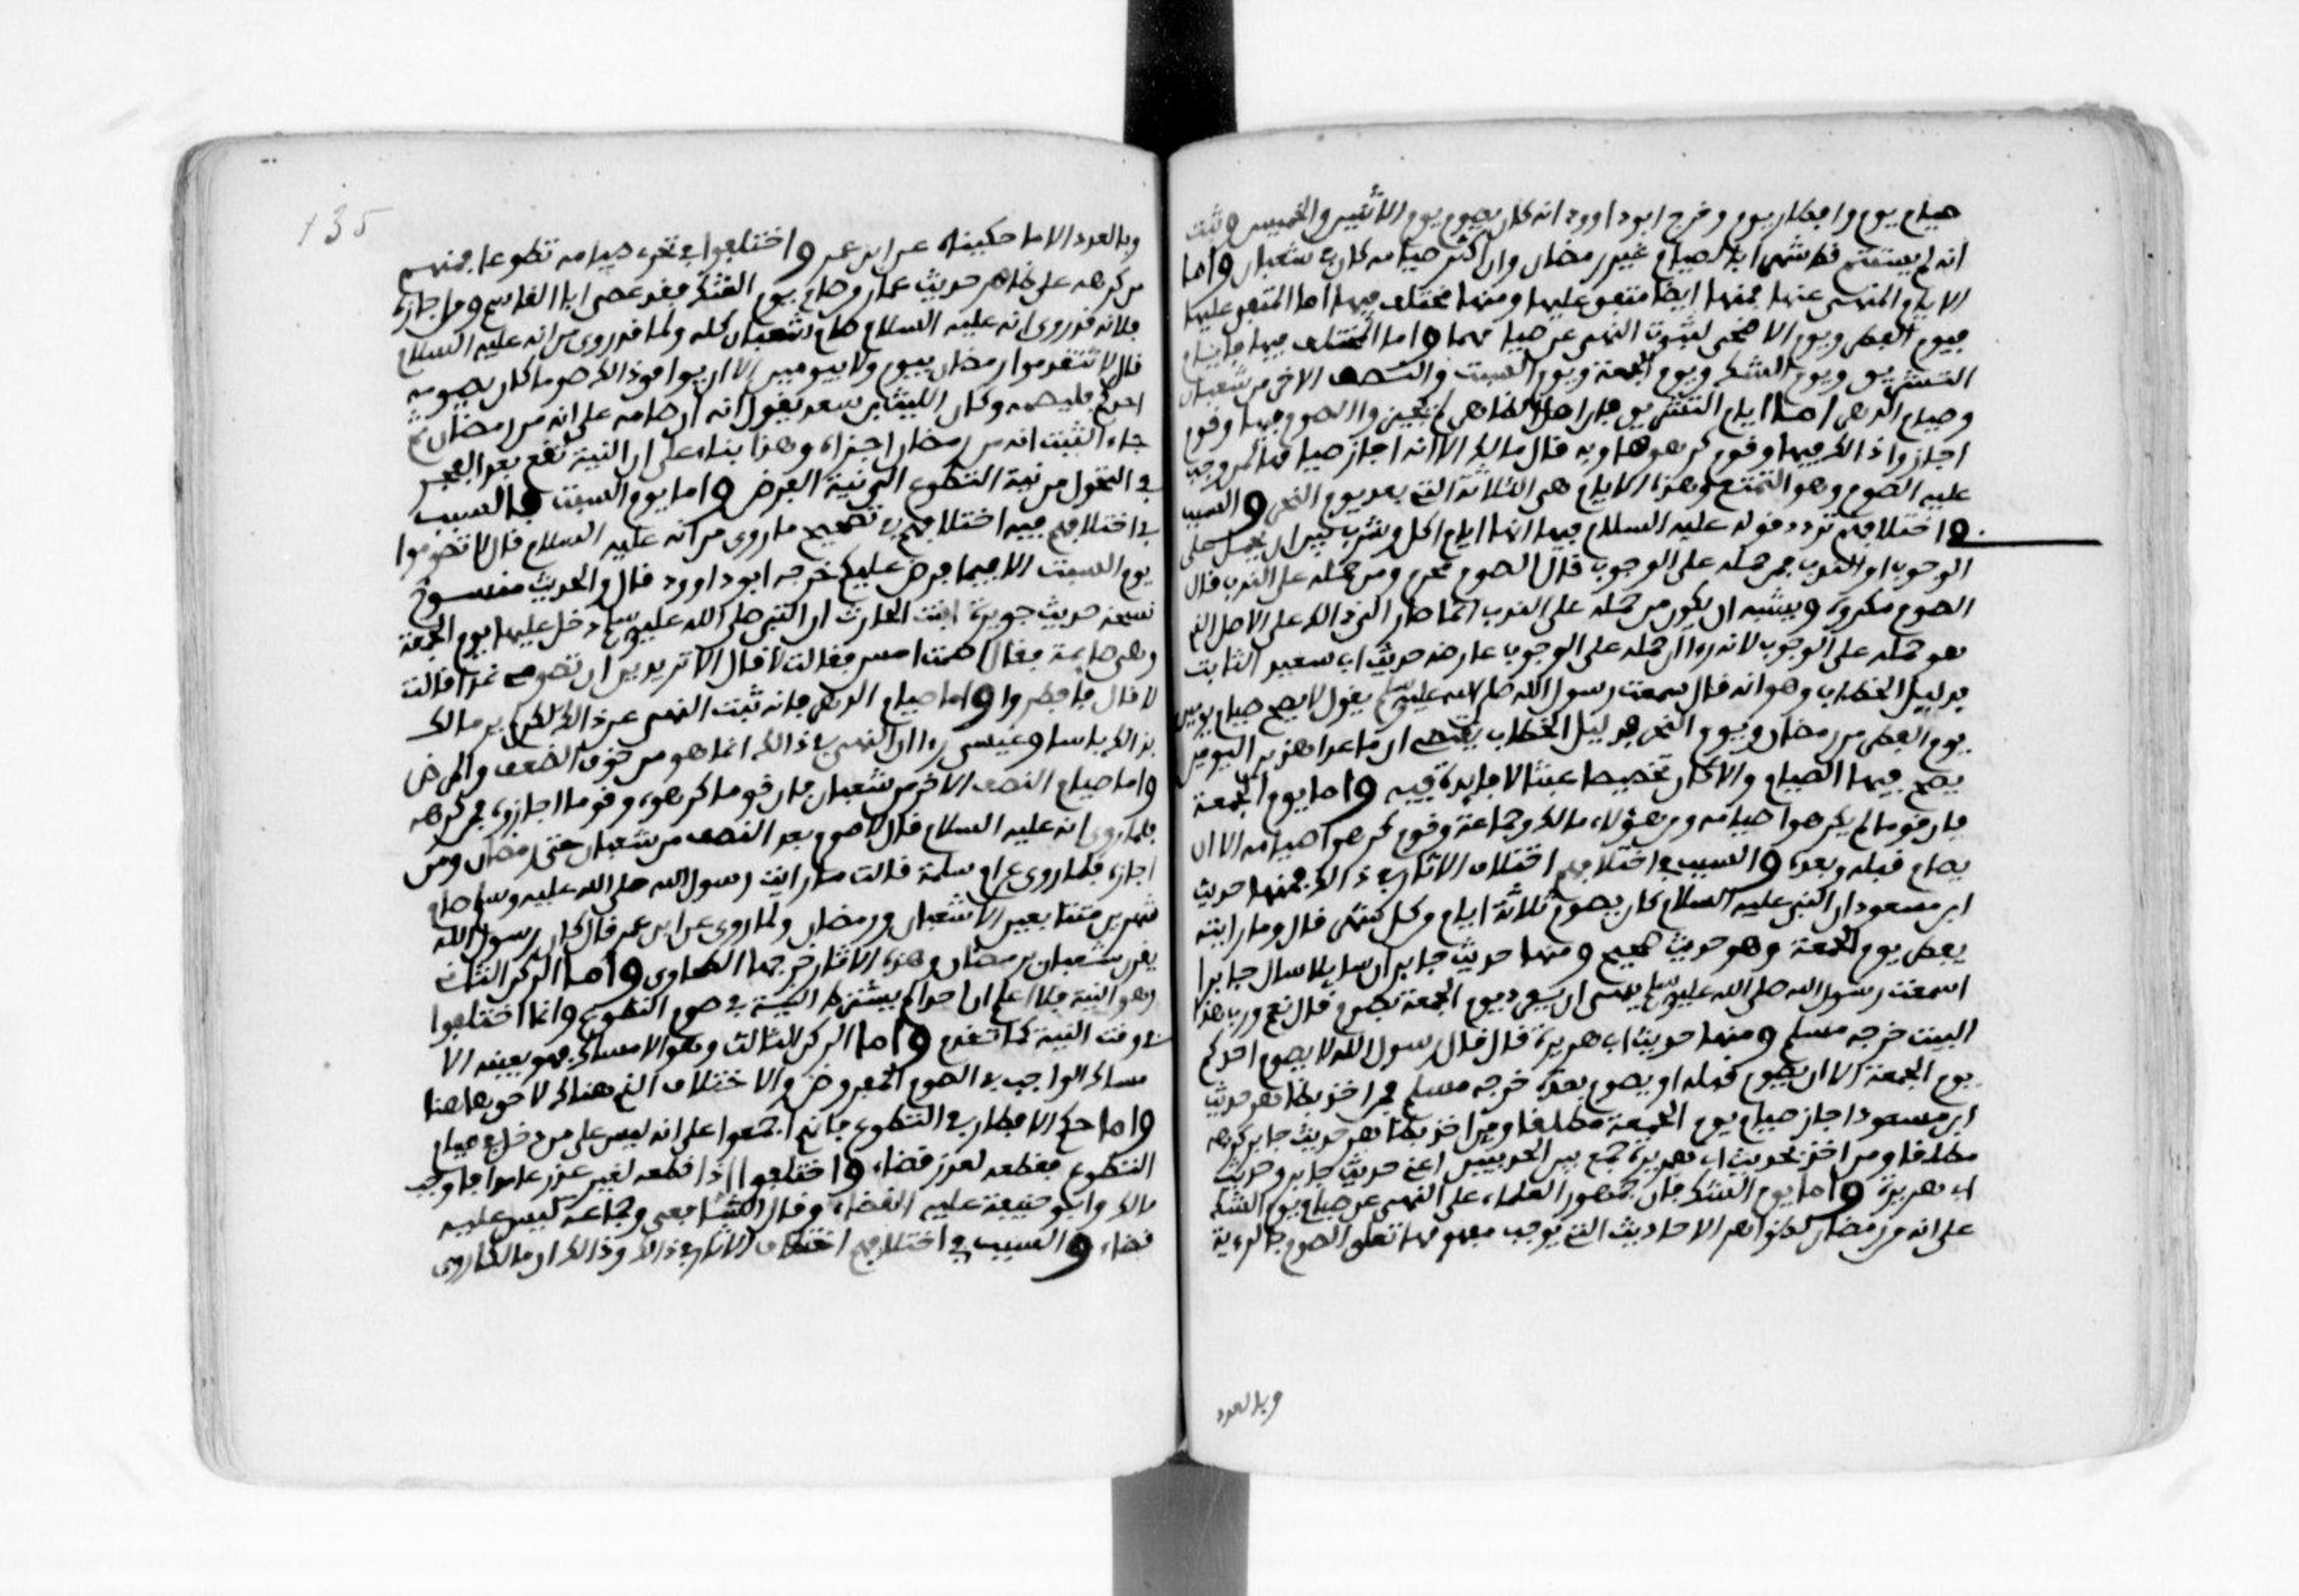 صيام يوم وافطار يوم وخرج ابوداوود انه كان يصوم يوم الاثنين والخميس وثبت
انه لم يستتم قط شهرا بالصيام غير رمضان وان اكثر صيامه كان في شعبان واما
الايام المنهى عنها فمنها ايضا متفق عليها ومنها مختلف فيها اما المتفق عليها
فيوم الفطر ويوم الاضحى لثبوت النهى عن صيامهما واما المختلف فيها فايام
التشريق ويوم الشك ويوم الجمعة ويوم السبت والنصف الاخر من شعبان
وصيام الدهر اما ايام التشريق فان اهل الظاهر لم يجيزوا الصوم فيها وقوم
اجازوا ذالك فيها وقوم كرهوها وبه قال مالك الا انه اجاز صيامها لمن وجب
عليه الصوم وهو التمتع وهذه الايام هي الثلاثة التي بعد يوم النحر والسبب
في اختلافهم تردد قوله عليه السلام فيها انها ايام اكل وشرب بين ان يحمل على
الوجوب او الندب فمن حمله على الوجوب قال الصوم محرم ومن حمله على الندب قال
الصوم مكروه ويشبه ان يكون من حمله على الندب انما صار الى ذالك على الاصل الذي
هو حمله على الوجوب لانه رءا ان حمله على الوجوب عارضه حديث ابي سعيد الثابت
بدليل الخطاب وهو انه قال سمعت رسول الله صلى الله عليه وسلم يقول لا يصح صيام يومين
يوم الفطر من رمضان ويوم النحر فدليل الخطاب يقتضى ان ما عدا هذين اليومين
يصح فيها الصيام والا كان تخصيصا عبثا لا فايدة فيه واما يوم الجمعة
فان قوما لم يكرهوا صيامه ومن هؤلاء مالك وجماعة وقوم كرهوا صيامه الا ان
يصام قبله وبعده والسبب في اختلافهم اختلاف الاثار في ذالك فمنها حديث
ابن مسعود ان النبي عليه السلام كان يصوم ثلاثة ايام وكل شهر قال وما رايته
يفطر يوم الجمعة وهو حديث صحيح ومنها حديث جابر ان سايلا سال جابرا
اسمعت رسول الله صلى الله عليه وسلم ينهى ان يفرد يوم الجمعة بصوم قال نعم ورب هذا
البيت خرجه مسلم ومنها حديث ابي هريرة قال قال رسول الله لا يصوم احدكم
يوم الجمعة الا ان يصوم قبله او يصوم بعده خرجه مسلم فمن اخذ بظاهر حديث
ابن مسعود اجاز صيام يوم الجمعة مطلقا ومن اخذ بظاهر حديث جابر كرهه
مطلقا ومن اخذ بحديث ابي هريرة جمع بين الحديثين اعني حديث جابر وحديث
ابي هريرة واما يوم الشك فان جمهور العلماء على النهى عن صيام يوم الشك
على انه من رمضان لظواهر الاحاديث التي يوجب مفهومها تعلق الصوم بالرءية
وبالعدد
135
وبالعدد الا ما حكيناه عن ابن عمر واختلفوا في تحرى صيامه تطوعا فمنهم
من كرهه على ظاهر حديث عمار من صام يوم الشك فقد عصى ابا القاسم ومن اجازه
فلانه قد روى انه عليه السلام صام شعبان كله ولما قد روى من انه عليه السلام
قال لا تتقدموا رمضان بيوم ولا بيومين الا ان يوافق ذالك صوما كان يصومه
احدكم فليصمه وكان الليث بن سعد يقول انه ان صامه على انه من رمضان ثم
جاء الثبت انه من رمضان اجزاه وهذا بناء على ان النية تقع بعد الفجر
في التحول من نية التطوع الى نية الفرض واما يوم السبت فالسبب
في اختلافهم فيه اختلافهم في تصحيح ما روى من انه عليه السلام قال لا تصوموا
يوم السبت الا فيما فرض عليكم خرجه ابوداوود قال والحديث منسوخ
نسخه حديث جويرة ابنت الحارث ان النبي صلى الله عليه وسلم دخل عليها يوم الجمعة
وهي صايمة فقال اصمت امس فقالت لا قال الا تريدين ان تصومي غدا قالت
لا قال فافطروا واما صيام الدهر فانه ثبت النهى عن ذالك لكن لم ير مالك
بذالك باسا وعيسى رءا ان النهى في ذالك انما هو من خوف الضعف والمرض
واما صيام النصف الاخر من شعبان فان قوما كرهوه وقوما اجازوه فمن كرهه
فلما روى انه عليه السلام قال لا صوم بعد النصف من شعبان حتى رمضان ومن
اجازه فلما روى عن ام سلمة قالت ما رايت رسول الله صلى الله عليه وسلم صام
شهرين متتابعين الا شعبان ورمضان ولما روى عن ابن عمر قال كان رسول الله
يقرن شعبان برمضان وهذه الاثار خرجها الطحاوى واما الركن الثاني
وهو النية فلا اعلم ان احدا لم يشترط النية في صوم التطوع وانما اختلفوا
في وقت النية كما تقدم واما الركن الثالث وهو الامساك فهو بعينه الا
مساك الواجب في الصوم المفروض والاختلاف الذي هناك لاحق هاهنا
واما حكم الافطار في التطوع فانهم اجمعوا على انه ليس على من دخل في صيام
التطوع فقطعه لعذر قضاء واختلفوا اذا قطعه لغير عذر عامدا فاوجب
مالك وابو حنيفة عليه القضاء وقال الشافعي وجماعة ليس عليه
قضاء والسبب في اختلافهم اختلاف الاثار في ذالك وذالك ان مالكا روى